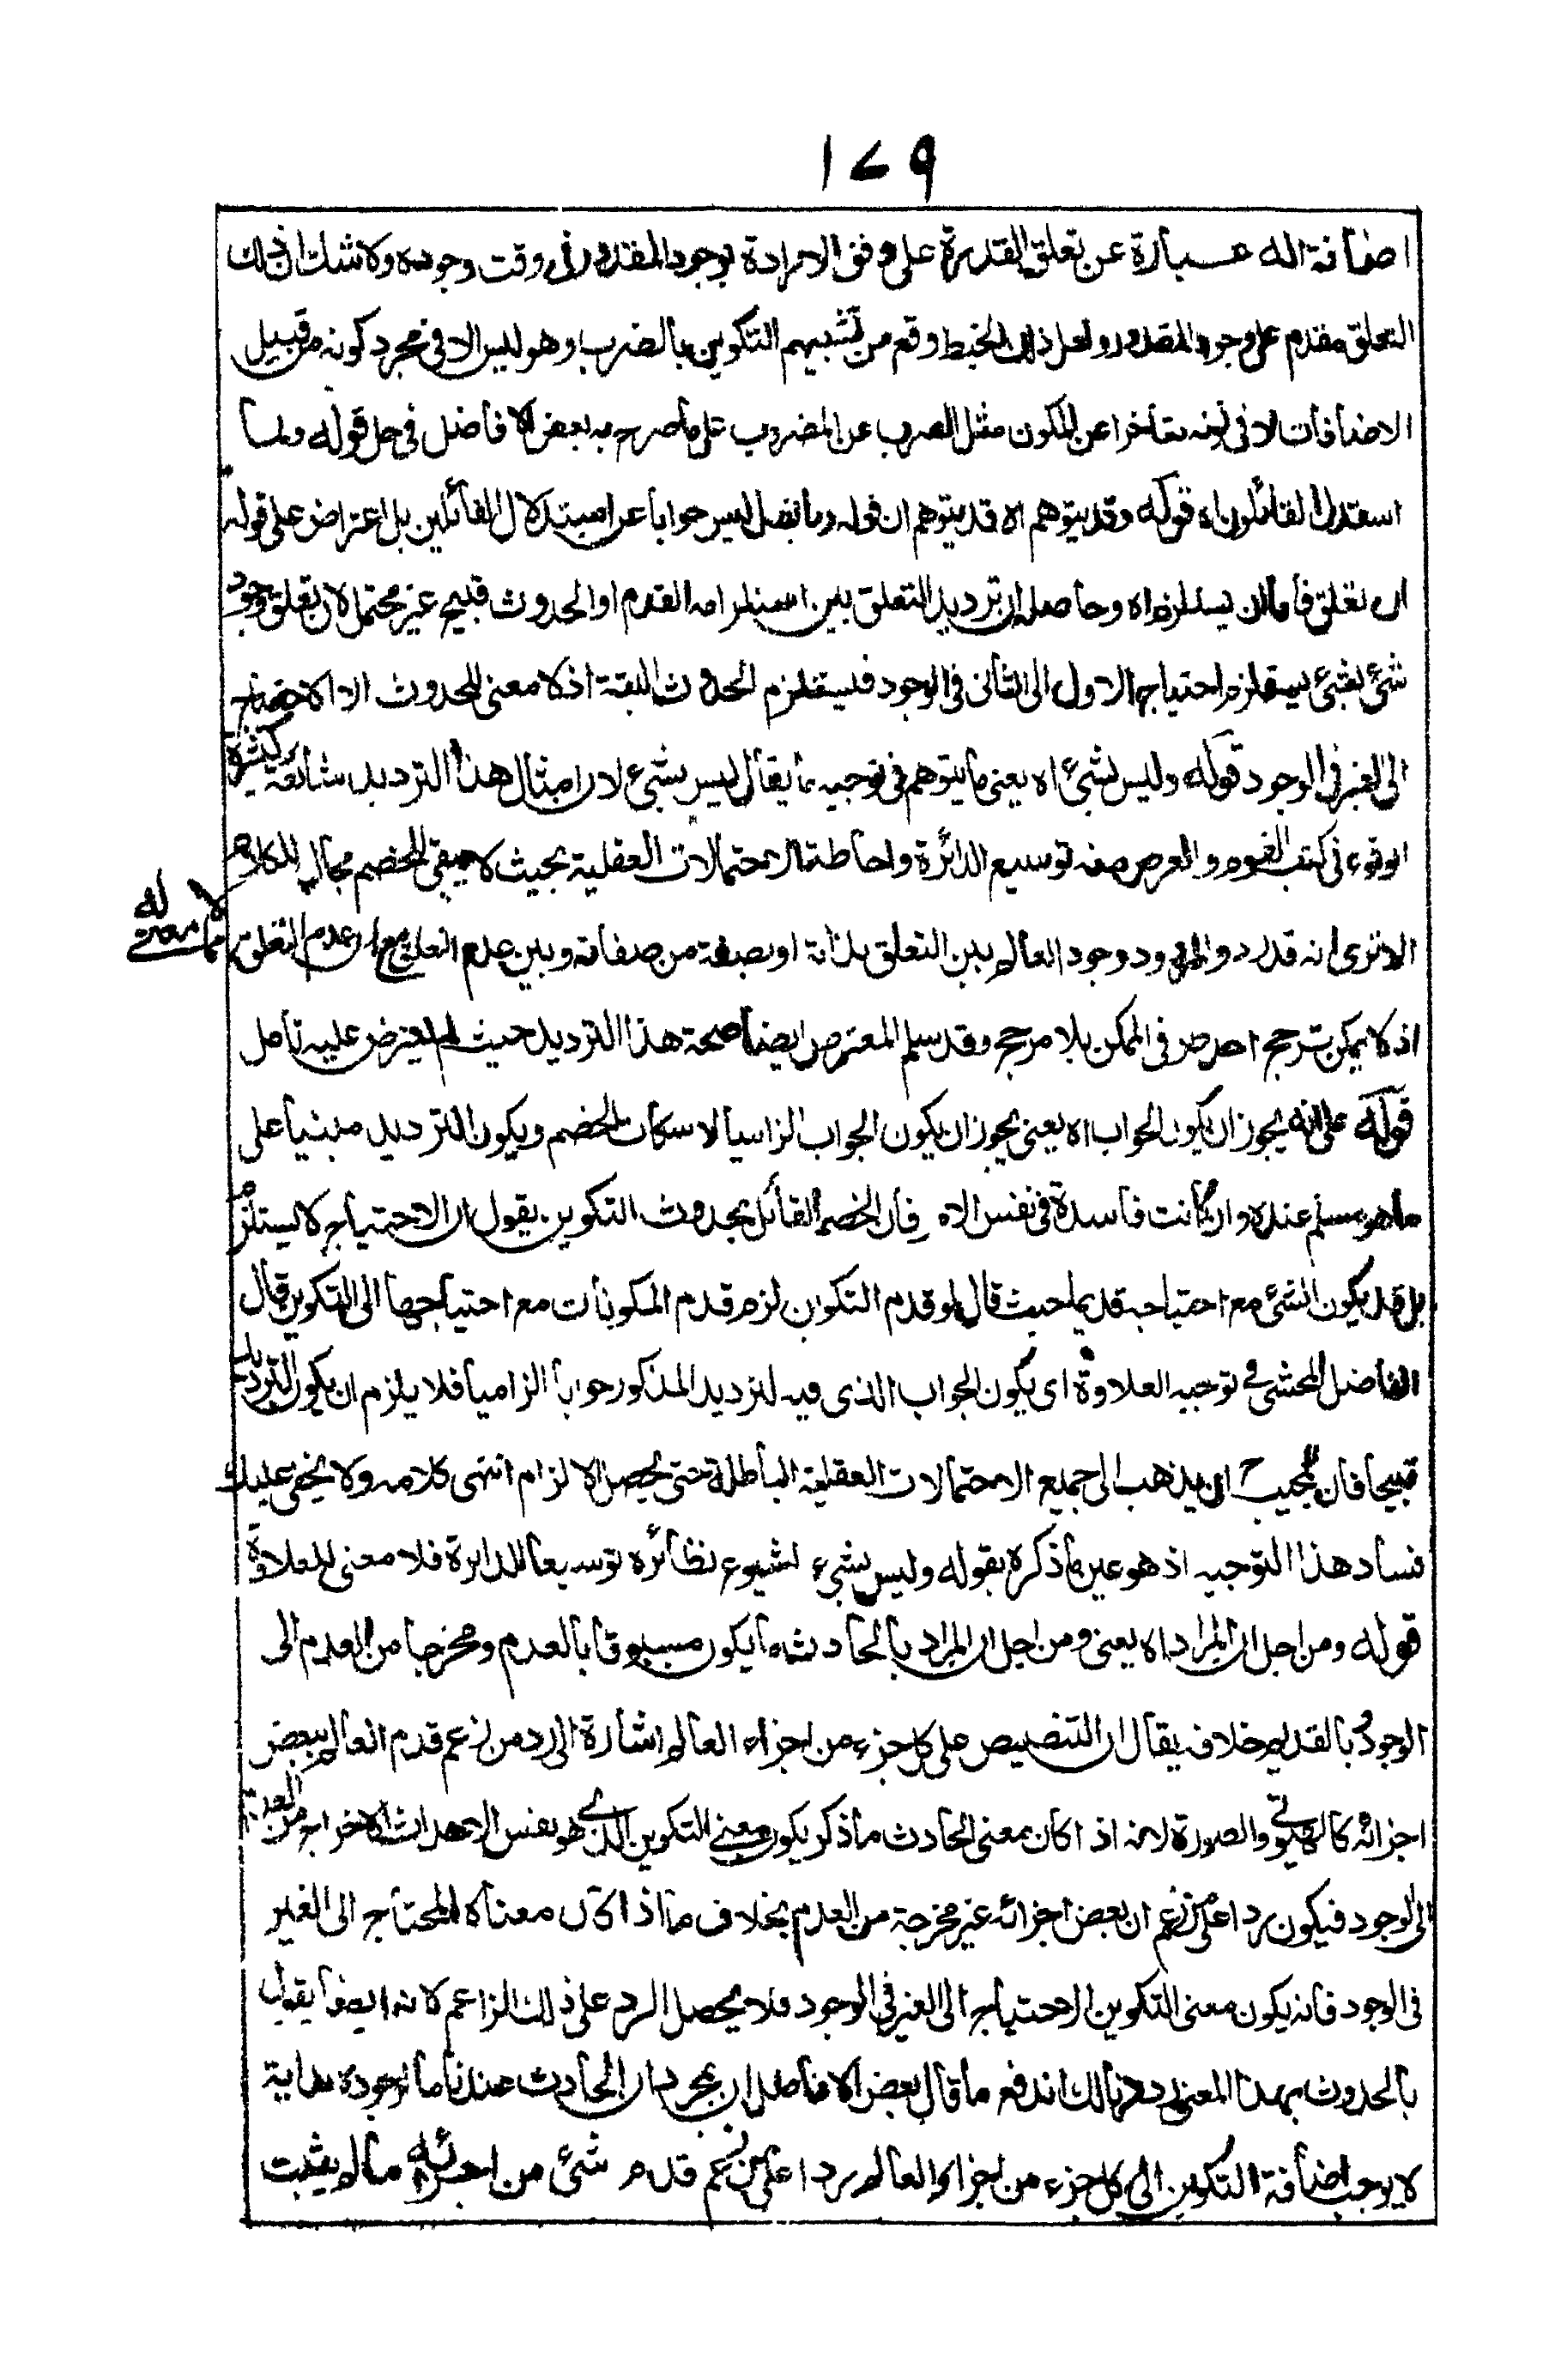 ١٧٩
اضافة اله عبارة عن تعلق القدرة على وفق الارادة بوجود المقدور فى وقت وجوده ولا شك ان ذلك
التعلق مقدم على وجود المقدور ولعل ذلك الخبط وقع من تشبيههم التكوين بالضرب وهو ليس الا فى مجرد كونه من قبيل
الاضافات لا فى كونه متأخرا عن المكون مثل الضرب عن المضروب على ما صرح به بعض الافاضل فى حل قوله ولما
استدل القائلون اه قوله وقد يتوهم اه قد يتوهم ان قوله وما يقال ليس جوابا عن استدلال القائلين بل اعتراض على قوله
ان تعلق فاما ان يستلزم اه وحاصله ان ترديد التعلق بين استلزامه القدم او الحدوث قبيح غير محتمل لان تعلق وجود
شئ بشئ يستلزم احتياج الاول الى الثانى فى الوجود فيستلزم الحدوث البتة اذ لا معنى للحدوث الا الاحتياج
الى الغير فى الوجود قوله وليس بشئ اه يعنى ما يتوهم فى توجيه ما يقال ليس بشئ لان امثال هذا الترديد شائعة كثيرة
الوقوع فى كتب القوم والغرض منه توسيع الدائرة واحاطة الاحتمالات العقلية بحيث لا يبقى للخصم مجال الكلام
الا ترى انه قد ردد وجود العالم بين التعلق بذاته او بصفة من صفاته وبين عدم التعلق مع ان عدم التعلق
مما لا معنى له
اذ لا يمكن ترجح احد طرفى الممكن بلا مرجح وقد سلم المعترض ايضا صحة هذا الترديد حيث لم يعترض عليه تأمل
قوله على انه يجوز ان يكون الجواب اه يعنى يجوز ان يكون الجواب الزاميا لاسكات الخصم ويكون الترديد مبنيا على
ما هو مسلم عنده وان كانت فاسدة فى نفس الامر فان الخصم القائل بحدوث التكوين يقول ان الاحتياج لا يستلزم
بل قد يكون الشئ مع احتياجه قديما حيث قال لو قدم التكوين لزم قدم المكونات مع احتياجها الى التكوين قال
الفاضل المحشى فى توجيه العلاوة اى يكون الجواب الذى فيه الترديد المذكور جوابا الزاميا فلا يلزم ان يكون الترديد
قبيحا فان للمجيب ان يذهب الى جميع الاحتمالات العقلية الباطلة حتى يحصل الالزام انتهى كلامه ولا يخفى عليك
فساد هذا التوجيه اذ هو عين ما ذكره بقوله وليس بشئ لشيوع نظائره توسيعا للدايرة فلا معنى للعلاوة
قوله ومن اجل ان المراد اه يعنى ومن اجل ان المراد بالحادث ما يكون مسبوقا بالعدم ومخرجا من العدم الى
الوجود بالقديم خلافه يقال ان التنصيص على كل جزء من اجزاء العالم اشارة الى رد من زعم قدم العالم ببعض
اجزائه كالهيولى والصورة لانه اذا كان معنى الحادث ما ذكر يكون معنى التكوين الذى هو نفس الاحداث الاخراج من العدم
الى الوجود فيكون ردا على من زعم ان بعض اجزائه غير مخرجة من العدم بخلاف ما اذا كان معناه المحتاج الى الغير
فى الوجود فانه يكون معنى التكوين الاحتياج الى الغير فى الوجود فلا يحصل الرد على ذلك الزاعم لانه ايضا يقول
بالحدوث بهذا المعنى وبذلك اندفع ما قال بعض الافاضل ان مجرد ان الحادث عندنا ما لوجوده بداية
لا يوجب اضافة التكوين الى كل جزء من اجزاء العالم ردا على من زعم قدم شئ من اجزائه ما لم يثبت